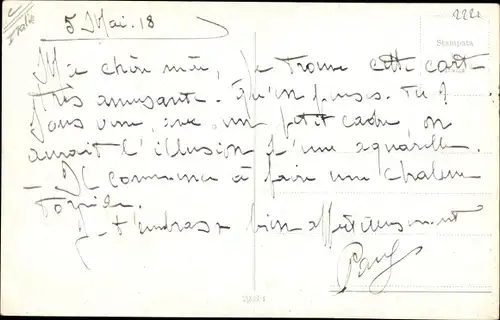 Italie
2221
5 Mai. 18
Stampata
Ma chère mère, Je trouve cette carte
très amusante. Qu'en penses-tu ?
Sous verre, avec un petit cadre, on
aurait l'illusion d'une aquarelle.
- Il commence à faire une chaleur
torride.
Je t'embrasse bien affectueusement